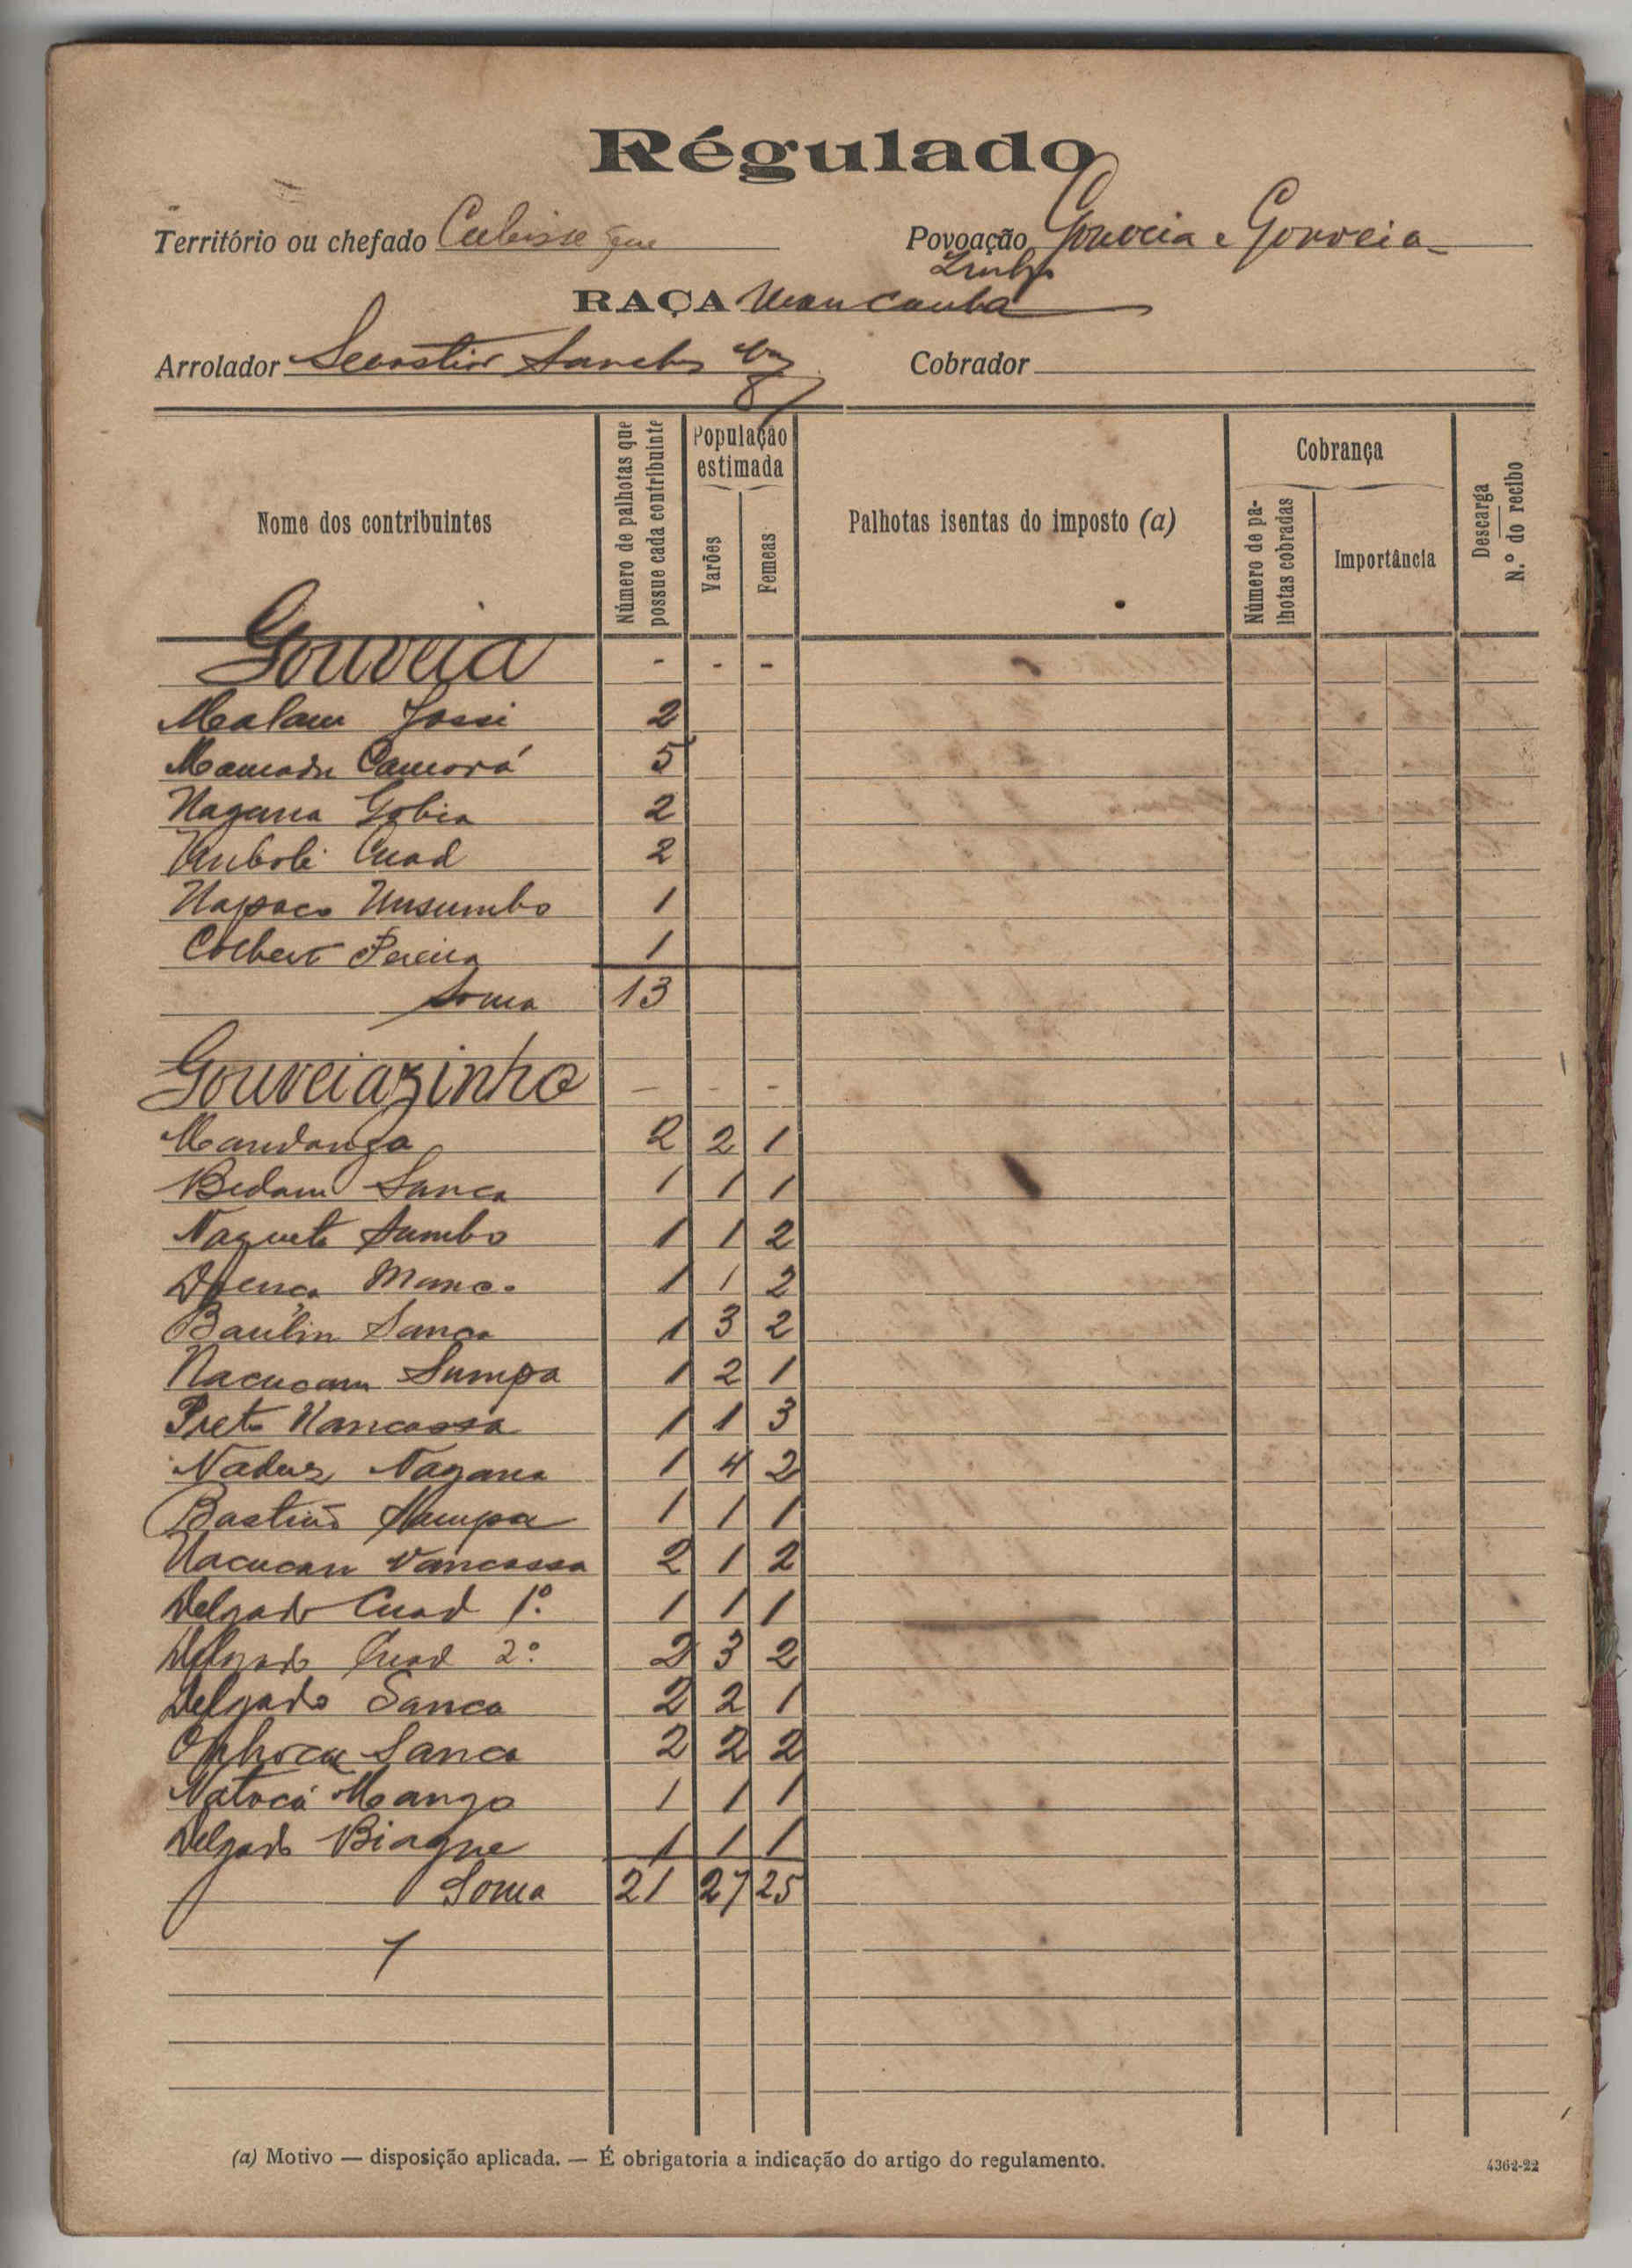 Régulado
Território ou chefado
Povoação Gouveia e Gouveia-
zinho
RAÇA Mancanha
Arrolador Sebastião Sanches
Cobrador
Nome dos contribuintes
Número de palhotas que possue cada contribuinte
População estimada
Varões
Femeas
Palhotas isentas do imposto (a)
Cobrança
Número de palhotas cobradas
Importância
Descarga
N.º do recibo
Gouveia - - -
Malam 2
Mamadu Camará 5
Nagana Gobia 2
Cuad 2
Napoco Unsumbo 1
Colbert Pereira 1
Soma 13
Gouveiazinho - - -
Mandanga 2 2 1
Bedam Sanca 1 1 1
Naguete Sumbo 1 1 2
1 1 2
Baulin Sanca 1 3 2
Nacucam Sumpa 1 2 1
Preto Nancassa 1 1 3
Nadus Nagana 1 4 2
Bastião Numpa 1 1 1
Nacucan Vancassa 2 1 2
Delgado Cuad 1º 1 1 1
Delgado Cuad 2º 2 3 2
Delgado Sanca 2 2 1
Sanca 2 2 2
Natocá Mango 1 1 1
Delgado Biague 1 1 1
Soma 21 27 25
(a) Motivo — disposição aplicada. — É obrigatoria a indicação do artigo do regulamento.
4362-22